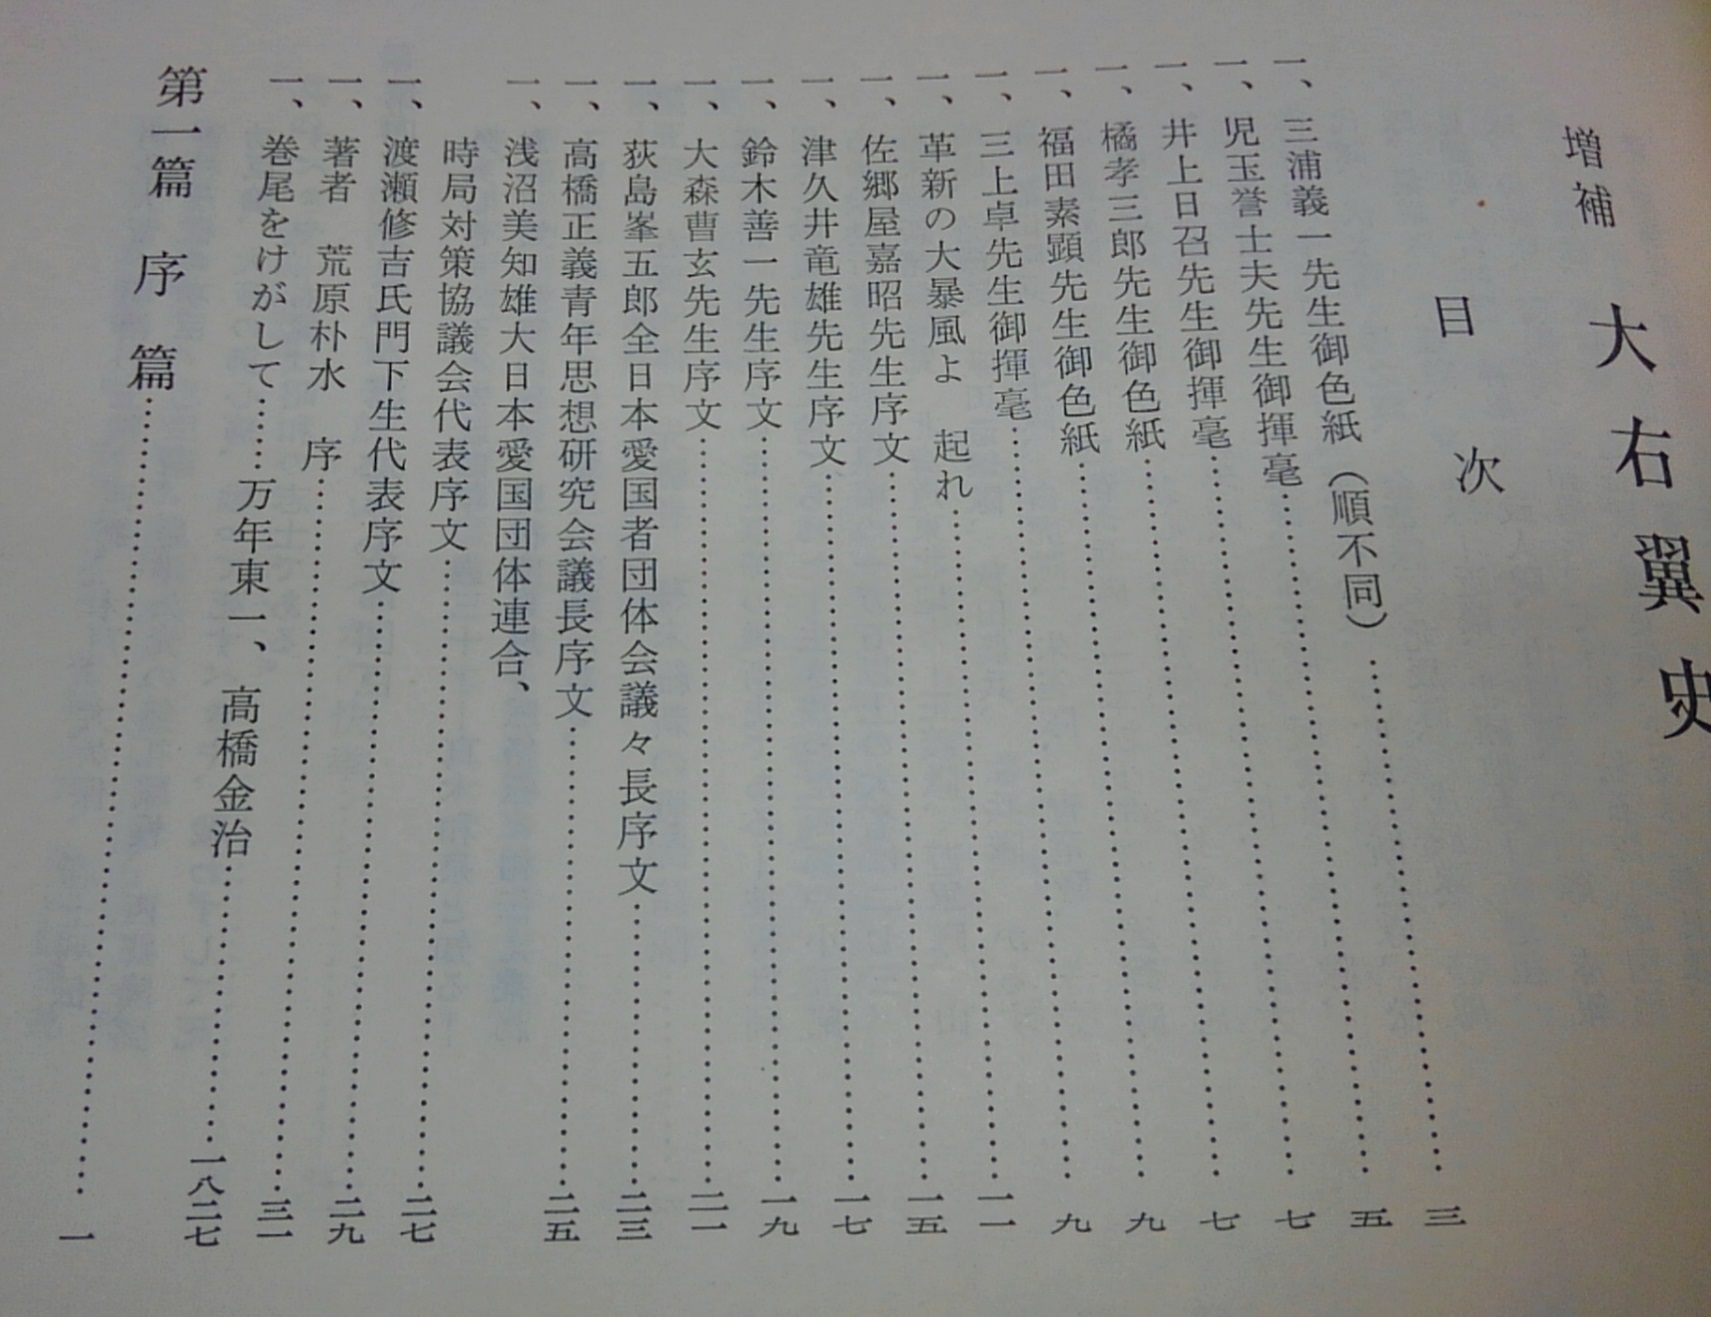 増補 大右翼史
目次
一、三浦義一先生御色紙（順不同）……三
一、児玉誉士夫先生御揮毫……五
一、井上日召先生御揮毫……七
一、橘孝三郎先生御色紙……七
一、福田素顕先生御色紙……九
一、三上卓先生御揮毫……九
一、革新の大暴風よ 起れ……一一
一、佐郷屋嘉昭先生序文……一五
一、津久井竜雄先生序文……一七
一、鈴木善一先生序文……一九
一、大森曹玄先生序文……二一
一、荻島峯五郎全日本愛国者団体会議々長序文……二三
一、高橋正義青年思想研究会議長序文……二五
一、浅沼美知雄大日本愛国団体連合、
時局対策協議会代表序文……二七
一、渡瀬修吉氏門下生代表序文……二九
一、著者 荒原朴水 序……三一
一、巻尾をけがして……万年東一、高橋金治……一八二七
第一篇 序篇……一